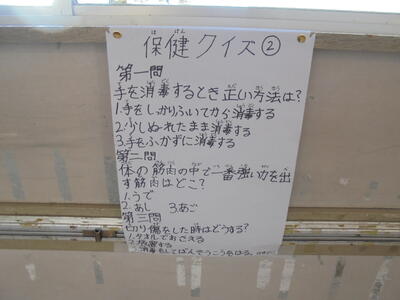 保健クイズ②
第一問
手を消毒するとき正しい方法は?
1.手をしっかりふいてから消毒する
2.少しぬれたまま消毒する
3.手をふかずに消毒する
第二問
体の筋肉の中で一番強い力を出
す筋肉はどこ?
1.うで
2.あし 3.あご
第三問
切り傷をした時はどうする?
1.タオルでおさえる
2.放置する
3.消毒をしてばんそうこうをはる。